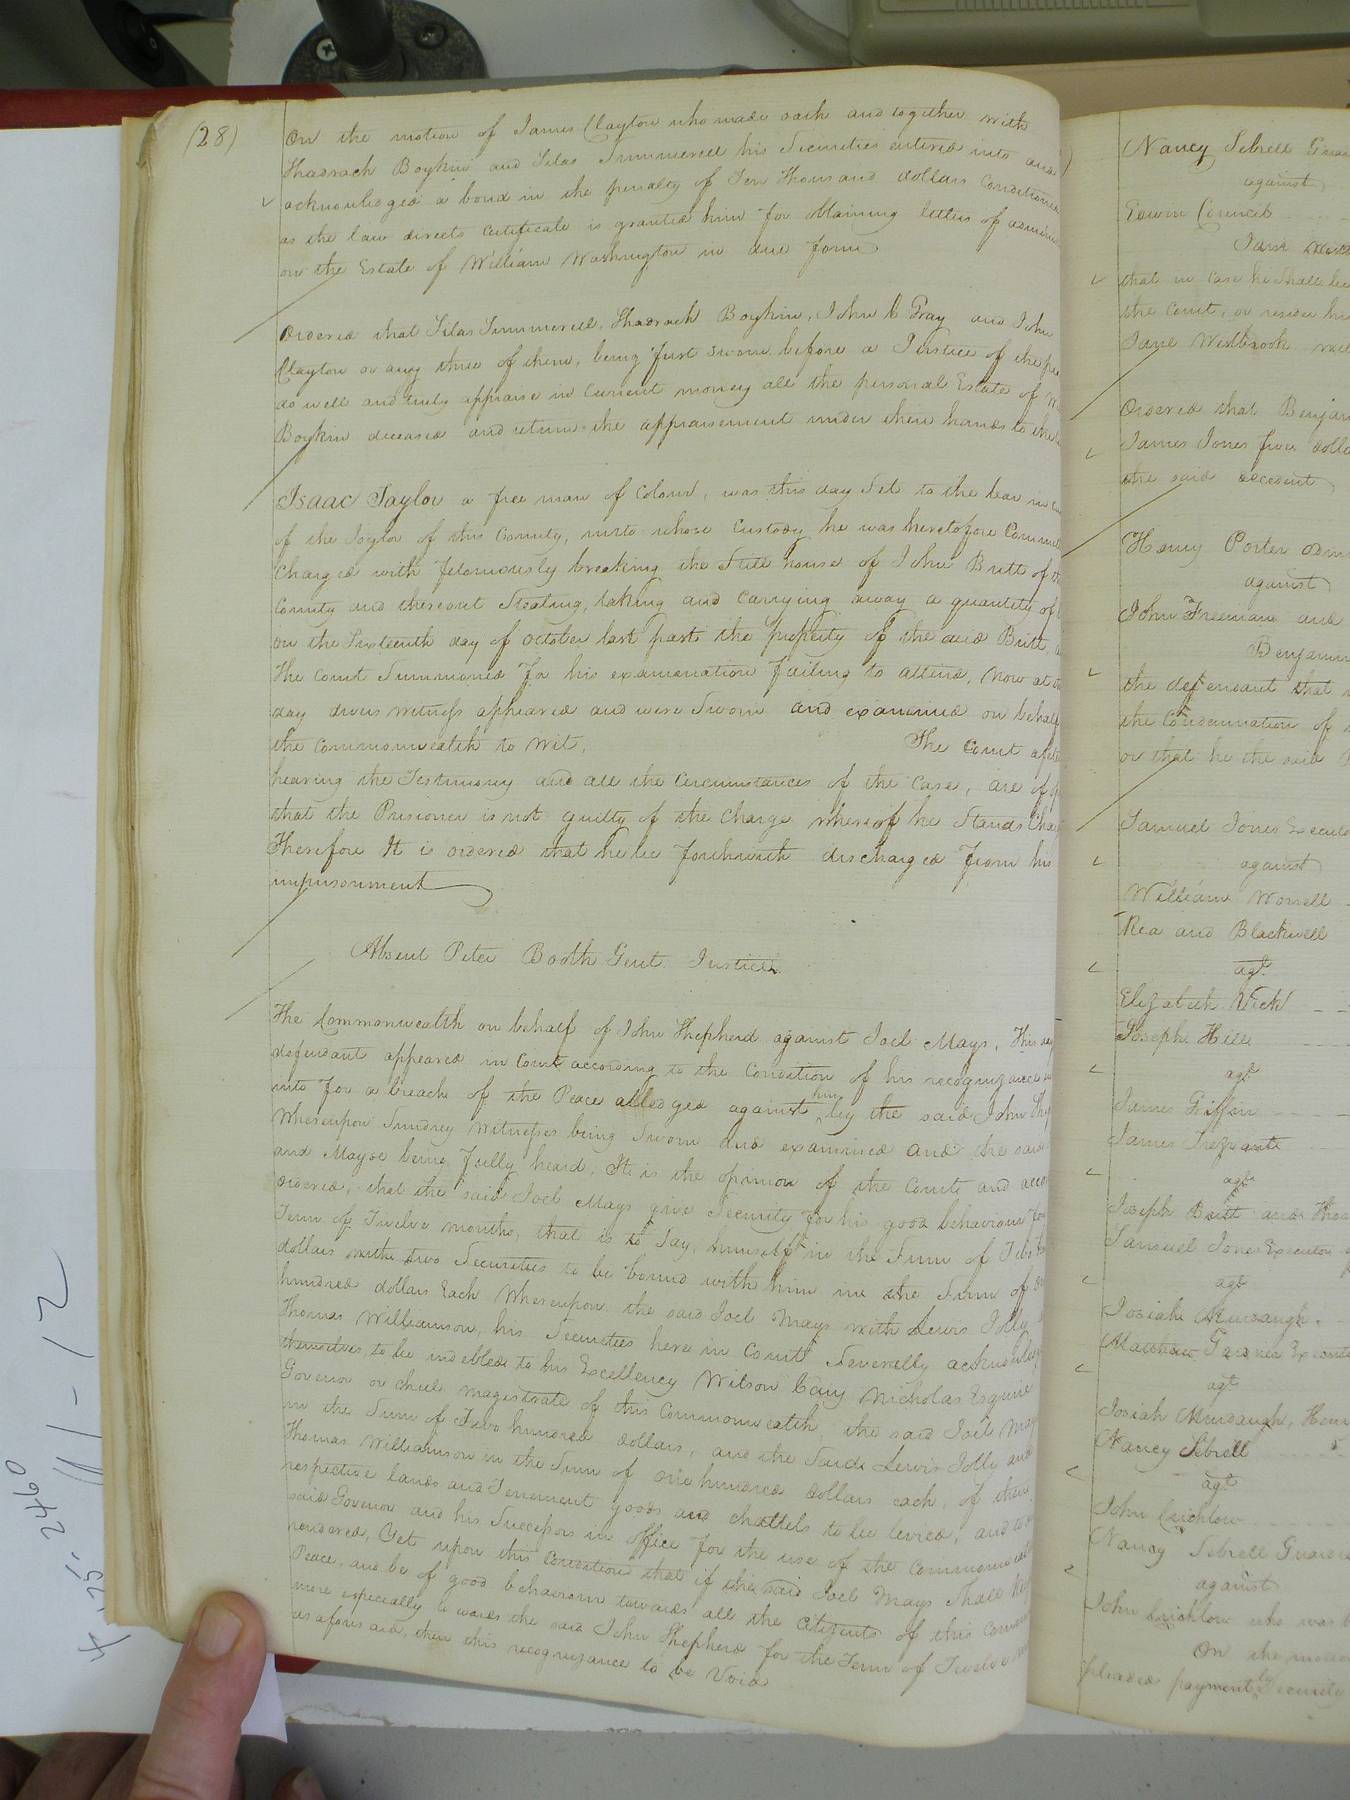 (28)
On the motion of James Clayton who made oath and together with
Shadrach Boykin and Silas Summerell his Securities entered into and
acknowledged a bond in the penalty of Ten thousand dollars Conditioned
as the law directs Certificate is granted him for obtaining letters of
on the Estate of William Washington in due form
Ordered that Silas Summerell, Shadrach Boykin, John C Gray and John
Clayton or any three of them, being first sworn before a Justice of the
do well and truly appraise in Current money all the personal Estate of
Boykin deceased and return the appraisement under their hands to the
Isaac Taylor a free man of Colour, was this day Set to the bar in
of the Joylor of this County, into whose Custody he was heretofore
Charged with feloniously breaking the Still house of John Britt of
County and thereout Stealing, taking and carrying away a quantity of
on the Sixteenth day of October last past the property of the said Britt,
the Court Summoned for his examination failing to attend, Now at
day divers witness appeared and were Sworn and examined on behalf
the Commonwealth to wit, The Court after
hearing the Testimony and all the Circumstances of the Case, are of
that the Prisoner is not guilty of the Charge whereof he Stands
Therefore It is ordered that he be forthwith discharged from his
imprisonment
Absent Peter Booth Gent. Justice
The Commonwealth on behalf of John Shepherd against Joel Mays, This day
defendant appeared in Court according to the Condition of his recognizance
into for a breach of the Peace alledged against him by the said John
Whereupon Sundrey Witnesses being Sworn and examined and the said
and Mayse being fully heard, It is the opinion of the Court and
ordered, that the said Joel Mays give Security for his good behaviour for
Term of Twelve months, that is to Say, himself in the Sum of
dollars with two Securities to be bound with him in the Sum of
hundred dollars Each Whereupon the said Joel Mays with Lewis Jolly
Thomas Williamson, his Securities here in Court Severelly
themselves, to be indebted to his Excellency Wilson Cary Nicholas Esquire
Govenor or chief magistrate of this Commonwealth, the said Joel May
in the Sum of Two hundred dollars, and the Said Lewis Jolly and
Thomas Williamson in the Sum of one hundred dollars each, of their
respective lands and Tenement goods and chattels to be levied, and to
said Govenor and his Successors in office for the use of the Commonwealth
rendered, Yet upon this Condition that if the said Joel Mays Shall
Peace, and be of good behaviour towards all the Citizents of this
more especially towards the said John Shepherd for the Term of Twelve
as aforesaid, then this recognizance to be Void
Nancy Sebrell
against
Edwin Council
that in Case he Shall be
the Court, or render his
Jane Westbrook
Ordered that
James Jones five
the said decedent
Henry Porter
against
John Freeman and
the defendant that
the Condemnation of
or that he the said
Samuel Jones
against
William Worrell
Rea and Blackwell
agt
Elizabeth Vick
Joseph Hill
agt
James Griffin
James Trezvant
agt
Joseph Britt and
Samuel Jones Executor
agt
Josiah Murdaugh
Matthew
agt
Josiah Murdaugh,
Nancy Sebrell
agt
John Crichlow
Nancy Sebrell
against
John Crichlow who was
On the motion
pleaded payment by
4-25-2460
11-12